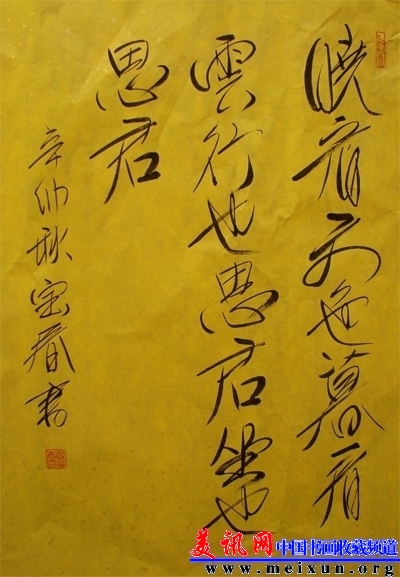 曉看天色暮看
雲行也思君坐也
思君
辛卯秋宝春書
美讯网 中国书画收藏频道
www.meixun.org